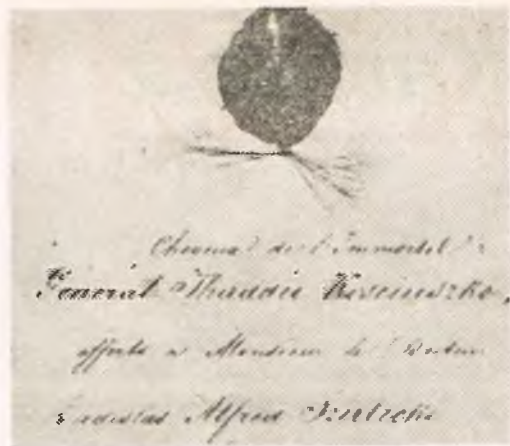 Cheveux de l'Immortel
Général Thaddée Kosciuszko,
offerts a Monsieur le Docteur
Alfred